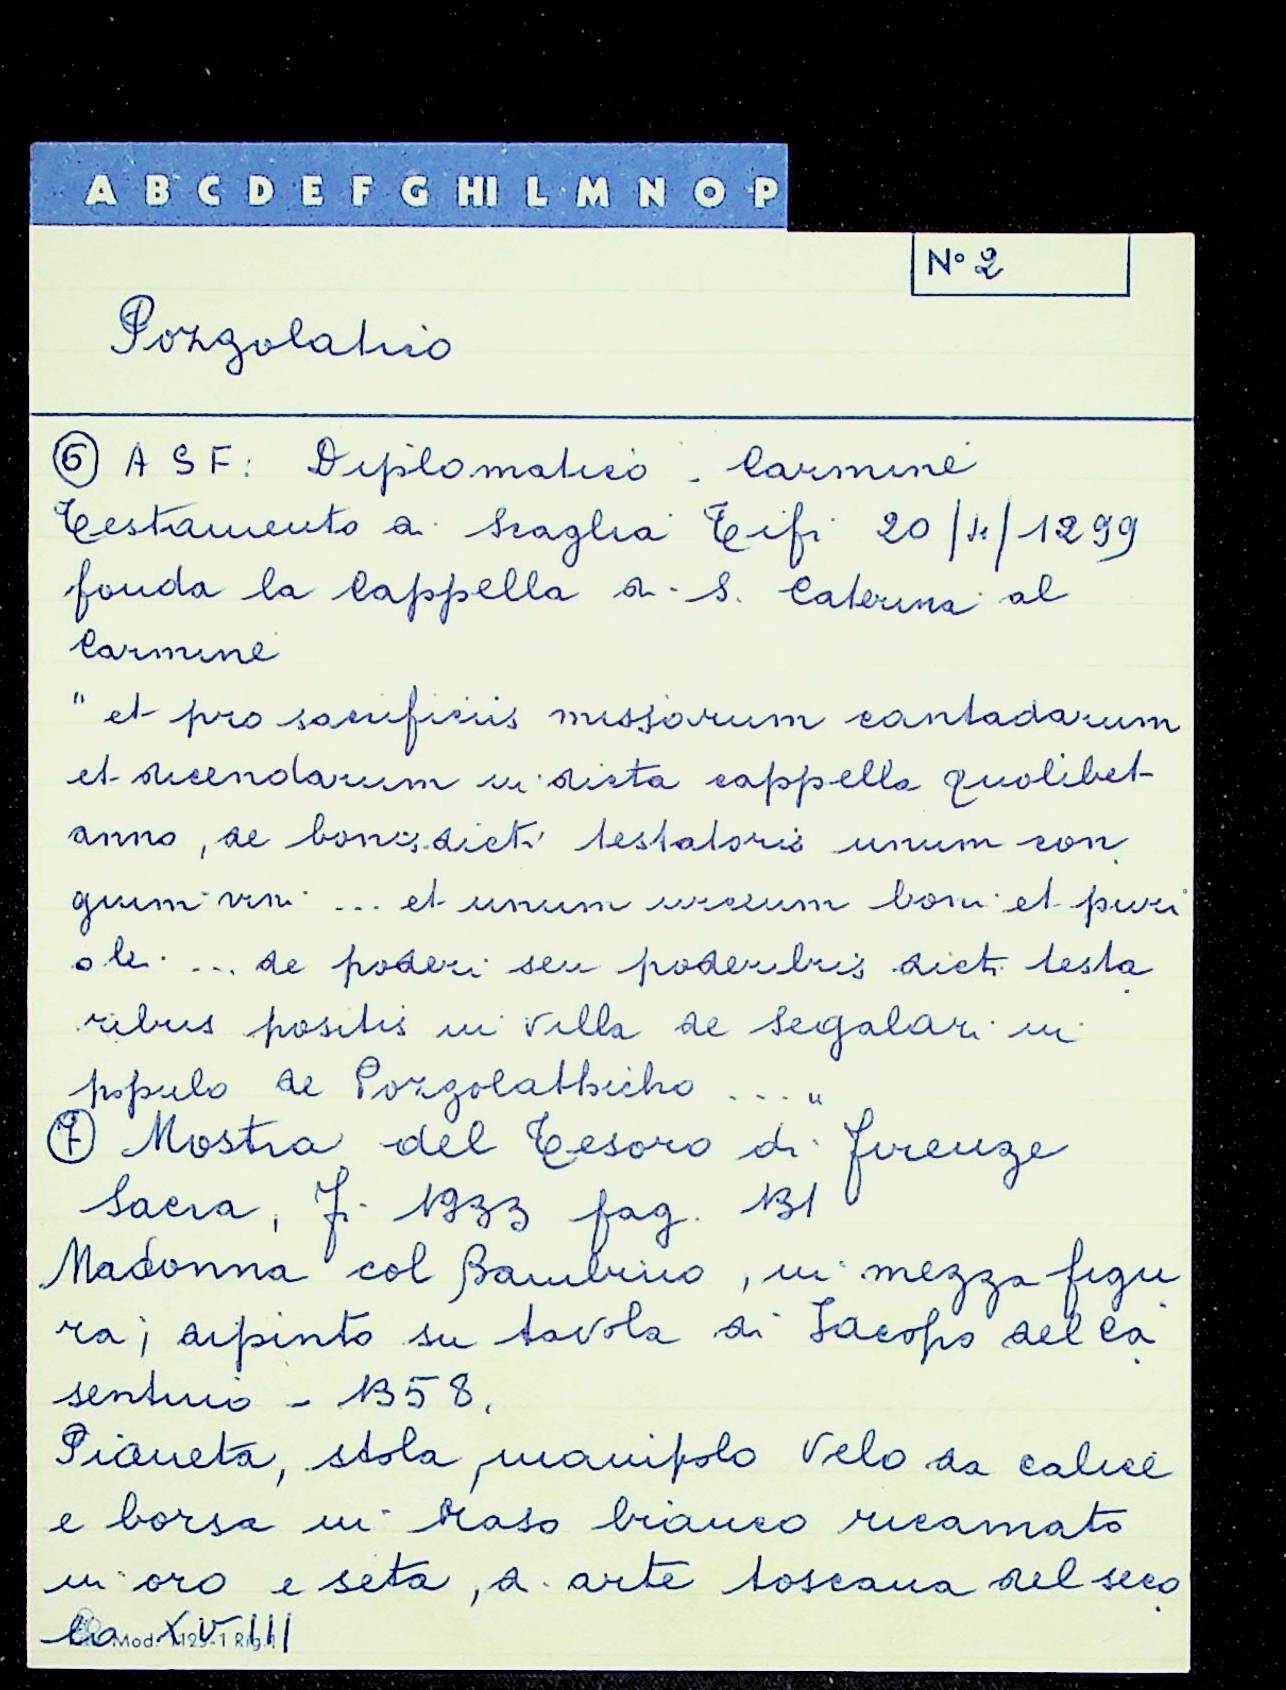 A B C D E F G HI L M N O P
N° 2
Pozzolatico
⑥ A S F: Diplomatico . Carmine
Testamento di Scaglia Tifi 20/11/1299
fonda la Cappella di S. Caterina al
Carmine
" et pro sacrificiis missarum cantadarum
et dicendarum in dicta cappella quolibet
anno, de bonis dicti testatoris unum con
gium vini ... et unum urceum boni et puri
olei ... de poderi seu poderibris dicti testa
ribus positis in villa de Segalari in
populo de Pozzolathicho ...."
⑦ Mostra del Tesoro di Firenze
Sacra, Fi 1933 pag. 131
Madonna col Bambino, in mezza figu
ra; dipinto su tavola di Jacopo del Ca
sentino - 1358.
Pianeta, stola, manipolo velo da calice
e borsa in raso bianco ricamato
in oro e seta, di arte toscana del seco
lo XVIII